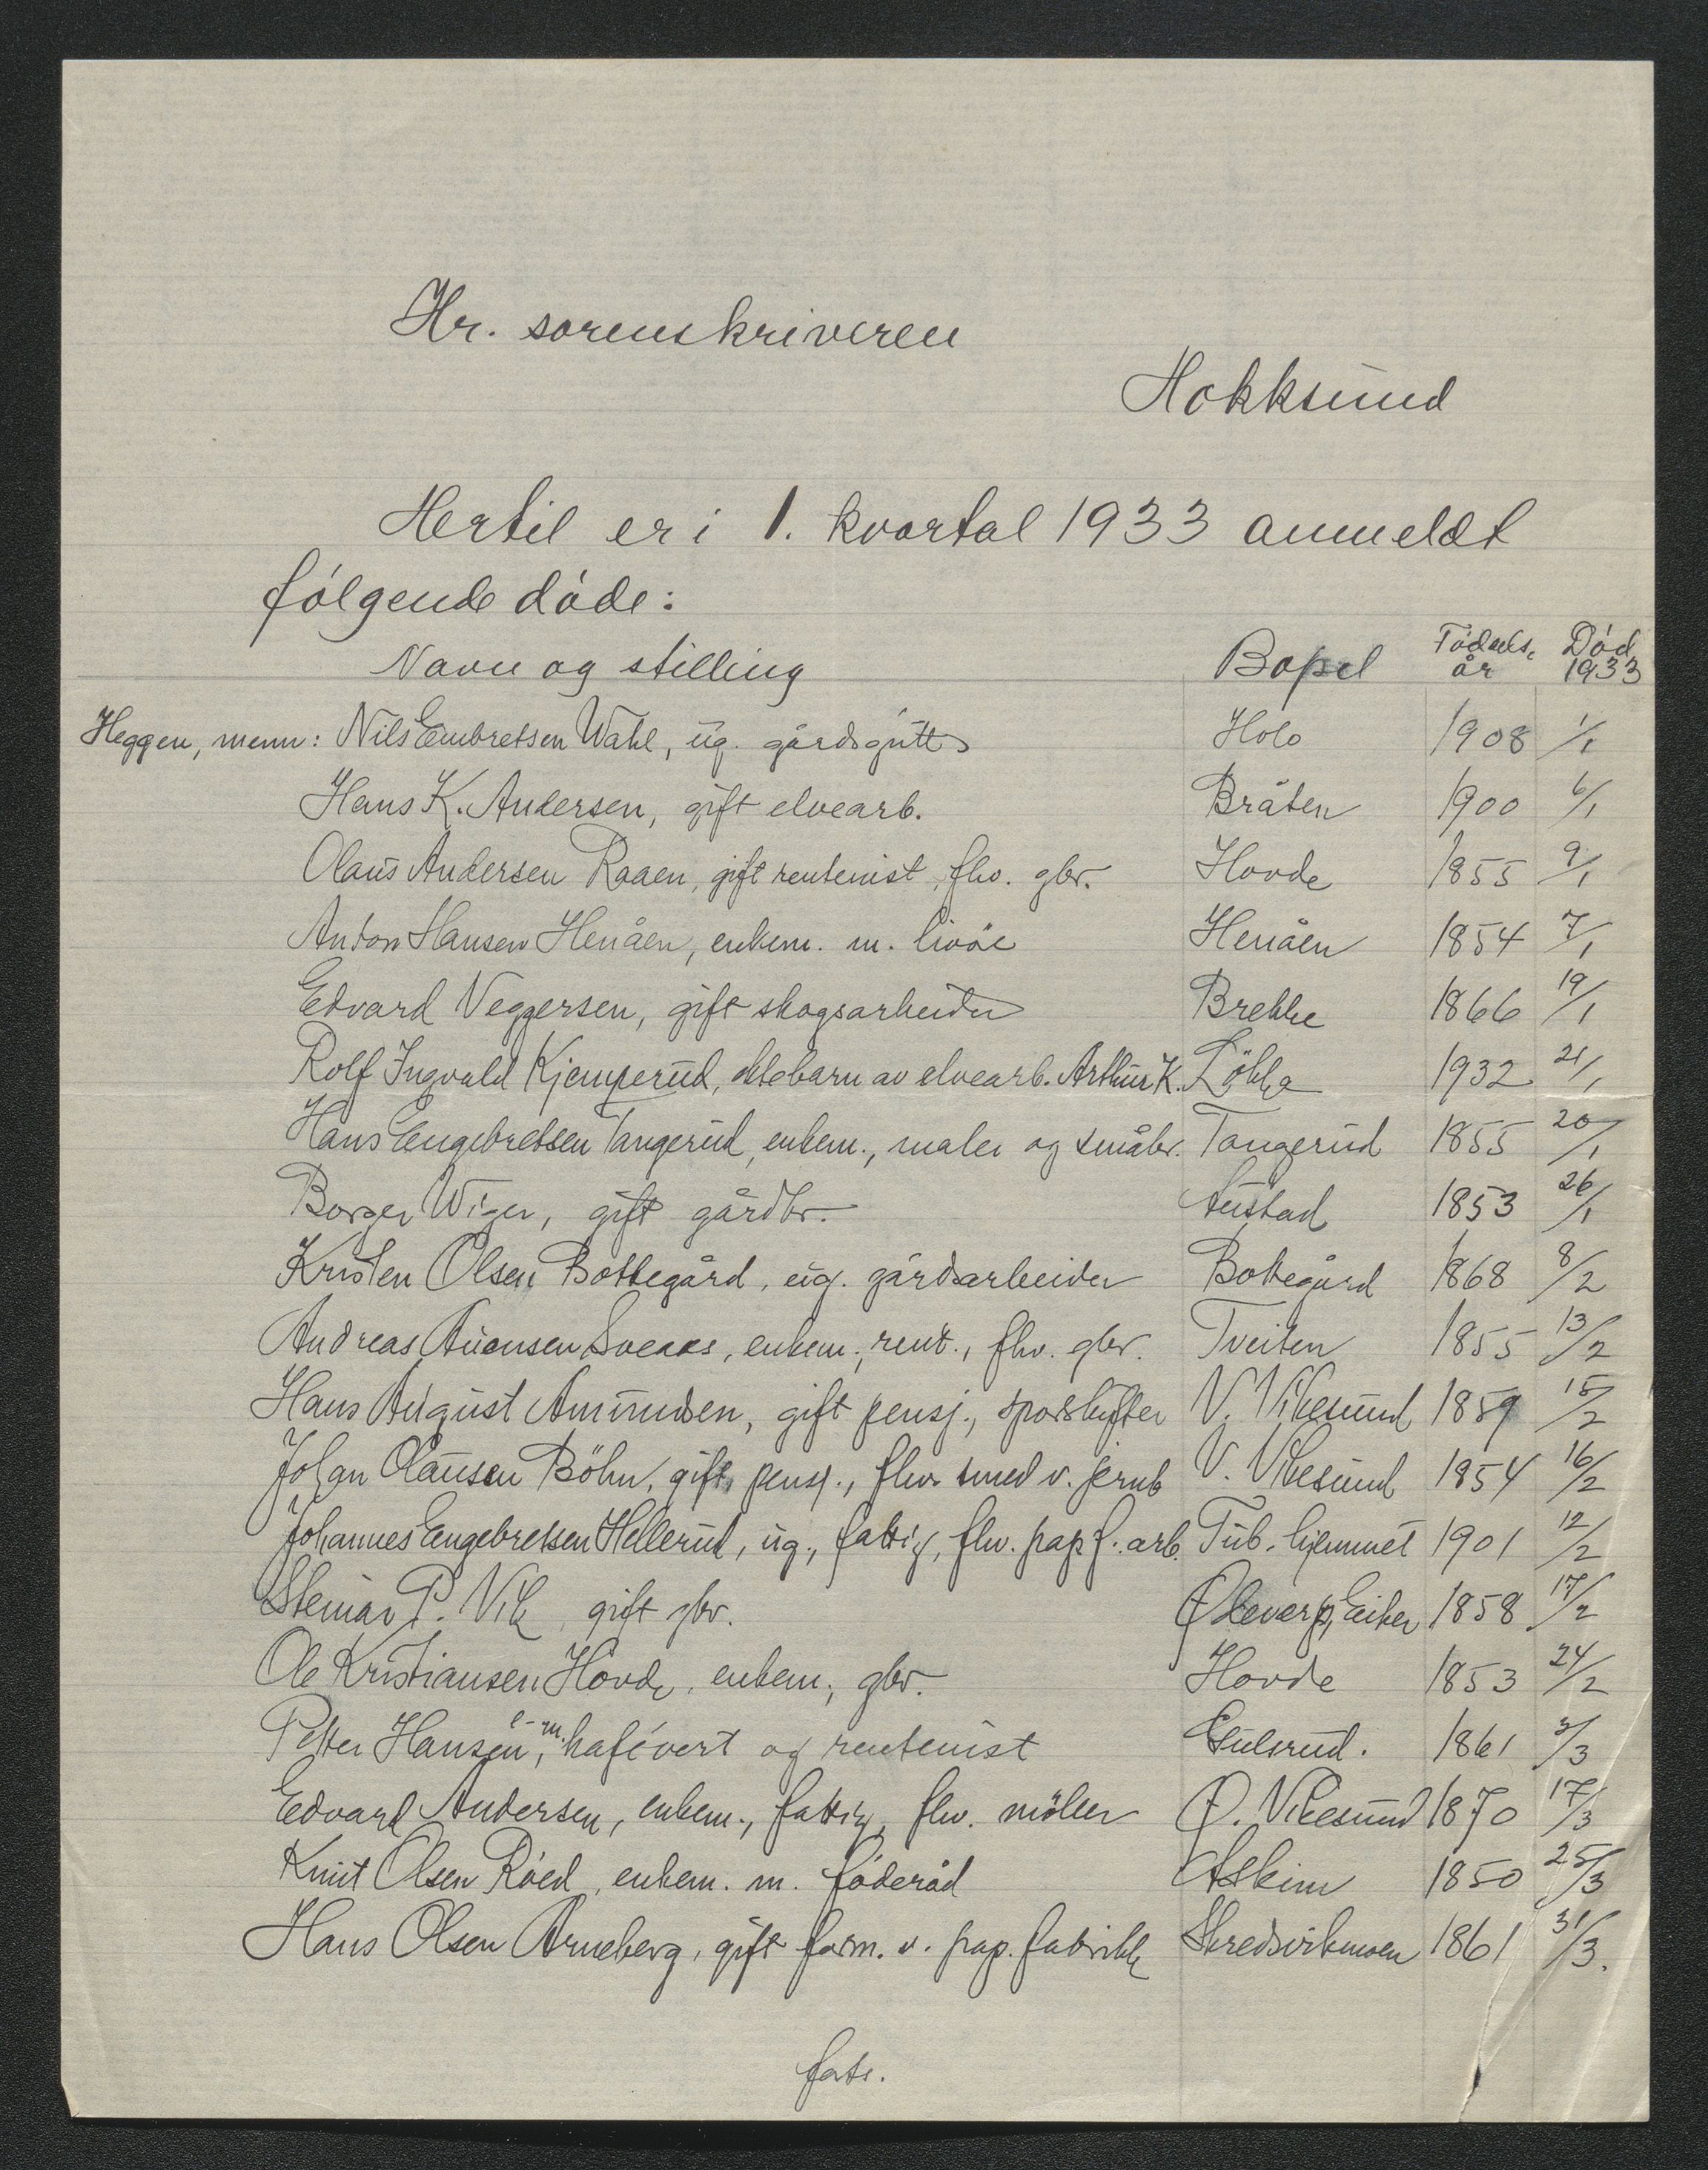 Hr. sorenskriveren
Hokksund
Hertil er i 1. kvartal 1933 anmeldt
følgende døde:
Navn og stilling Bopel Fødsels. år Død 1933
Heggen, menn: Nils Embretsen Wahl, ug. gårdsgutt Holo 1908 1/1
Hans K. Andersen, gift elvearb. Bråten 1900 6/1
Olaus Andersen Raaen, gift rentenist, fhv. gbr. Hovde 1855 9/1
Anton Hansen Henåen, enkem. m. livöre Henåen 1854 7/1
Edvard Veggersen, gift skogsarbeider Brekke 1866 19/1
Rolf Ingvald Kjemperud, ektebarn av elvearb. Arthur K. Løkka 1932 21/1
Hans Engebretsen Tangerud, enkem., maler og småbr. Tangerud 1855 20/1
Borger Wiger, gift gårdbr. Austad 1853 26/1
Kristen Olsen Bottegård, ug. gårdsarbeider Bottegård 1868 8/2
Andreas Auensen, enkem., rent., fhv. gbr. Tveiten 1855 13/2
Hans August Amundsen, gift pensj., sporskifter V. Vikesund 1859 15/2
Johan Olausen Böhn, gift, pensj., fhv. smed v. jernb V. Vikesund 1854 16/2
Johannes Engebretsen Hellerud, ug., fattig, fhv. papf. arb. Tub. hjemmet 1901 12/2
Steinar P. Vik, gift gbr. Eiker 1858 17/2
Ole Kristiansen Hovde, enkem., gbr. Hovde 1853 24/2
Petter Hansen, e-m. kafévert og rentenist Gulsrud. 1861 3/3
Edvard Andersen, enkem., fattig, fhv. møller Ø. Vikesund 1870 17/3
Knut Olsen Røed, enkem. m. føderåd Askim 1850 25/3
Hans Olsen Arneberg, gift form. v. pap. fabrikk Skredsvikmoen 1861 31/3.
forts.